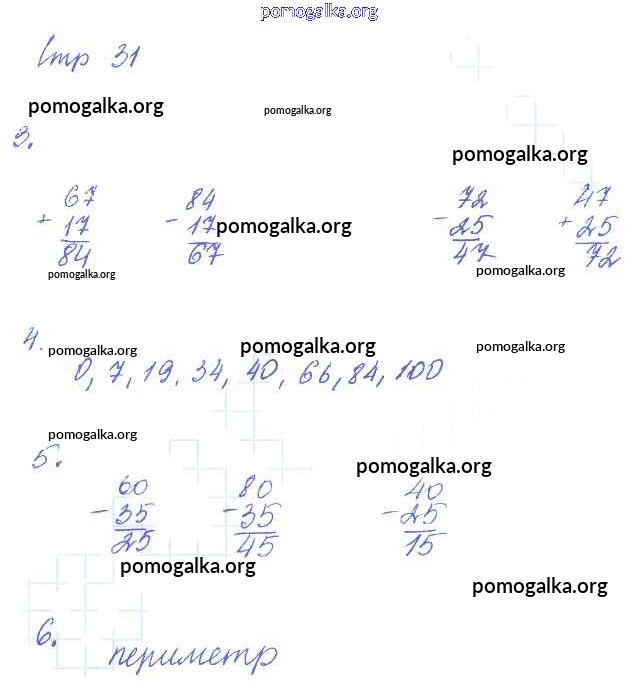 pomogalka.org
Стр 31
pomogalka.org pomogalka.org
3.
pomogalka.org
67 84 72 47
+ 17 - 17 pomogalka.org - 25 + 25
84 67 47 72
pomogalka.org pomogalka.org
4. pomogalka.org pomogalka.org pomogalka.org
0, 7, 19, 34, 40, 66, 84, 100
pomogalka.org
5. pomogalka.org
60 80 40
- 35 - 35 - 25
25 45 15
pomogalka.org
pomogalka.org
6.
периметр